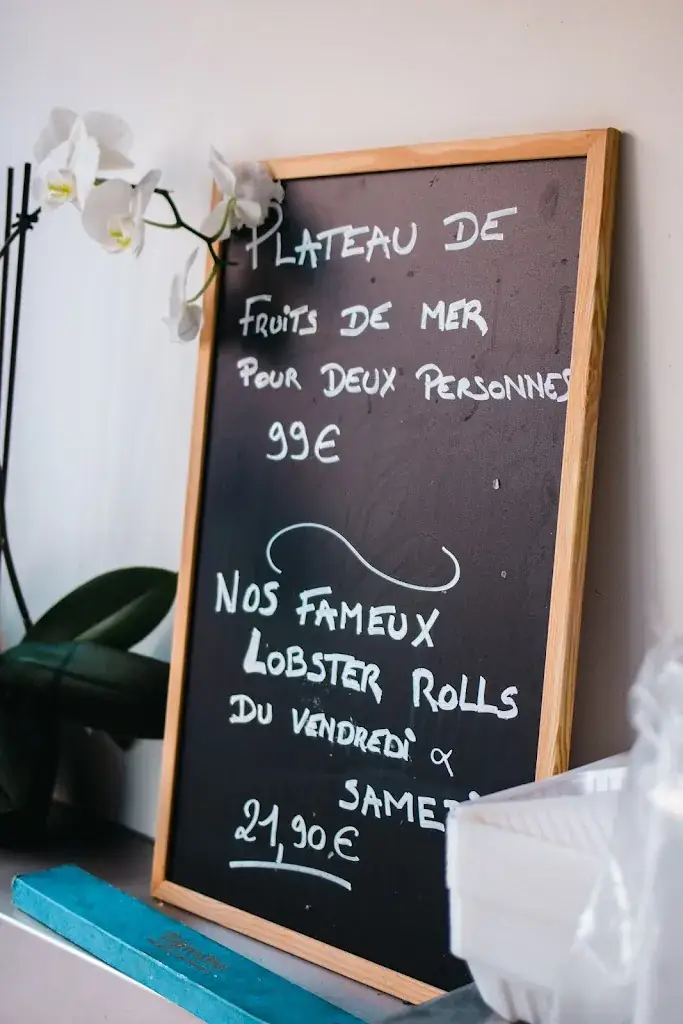 PLATEAU DE
FRUITS DE MER
POUR DEUX PERSONNES
99€
NOS FAMEUX
LOBSTER ROLLS
DU VENDREDI &
SAMEDI
21,90€